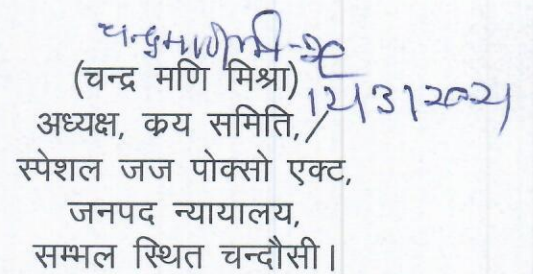 (चन्द्र मणि मिश्रा)
अध्यक्ष, क्रय समिति,
स्पेशल जज पोक्सो एक्ट,
जनपद न्यायालय,
सम्भल स्थित चन्दौसी।